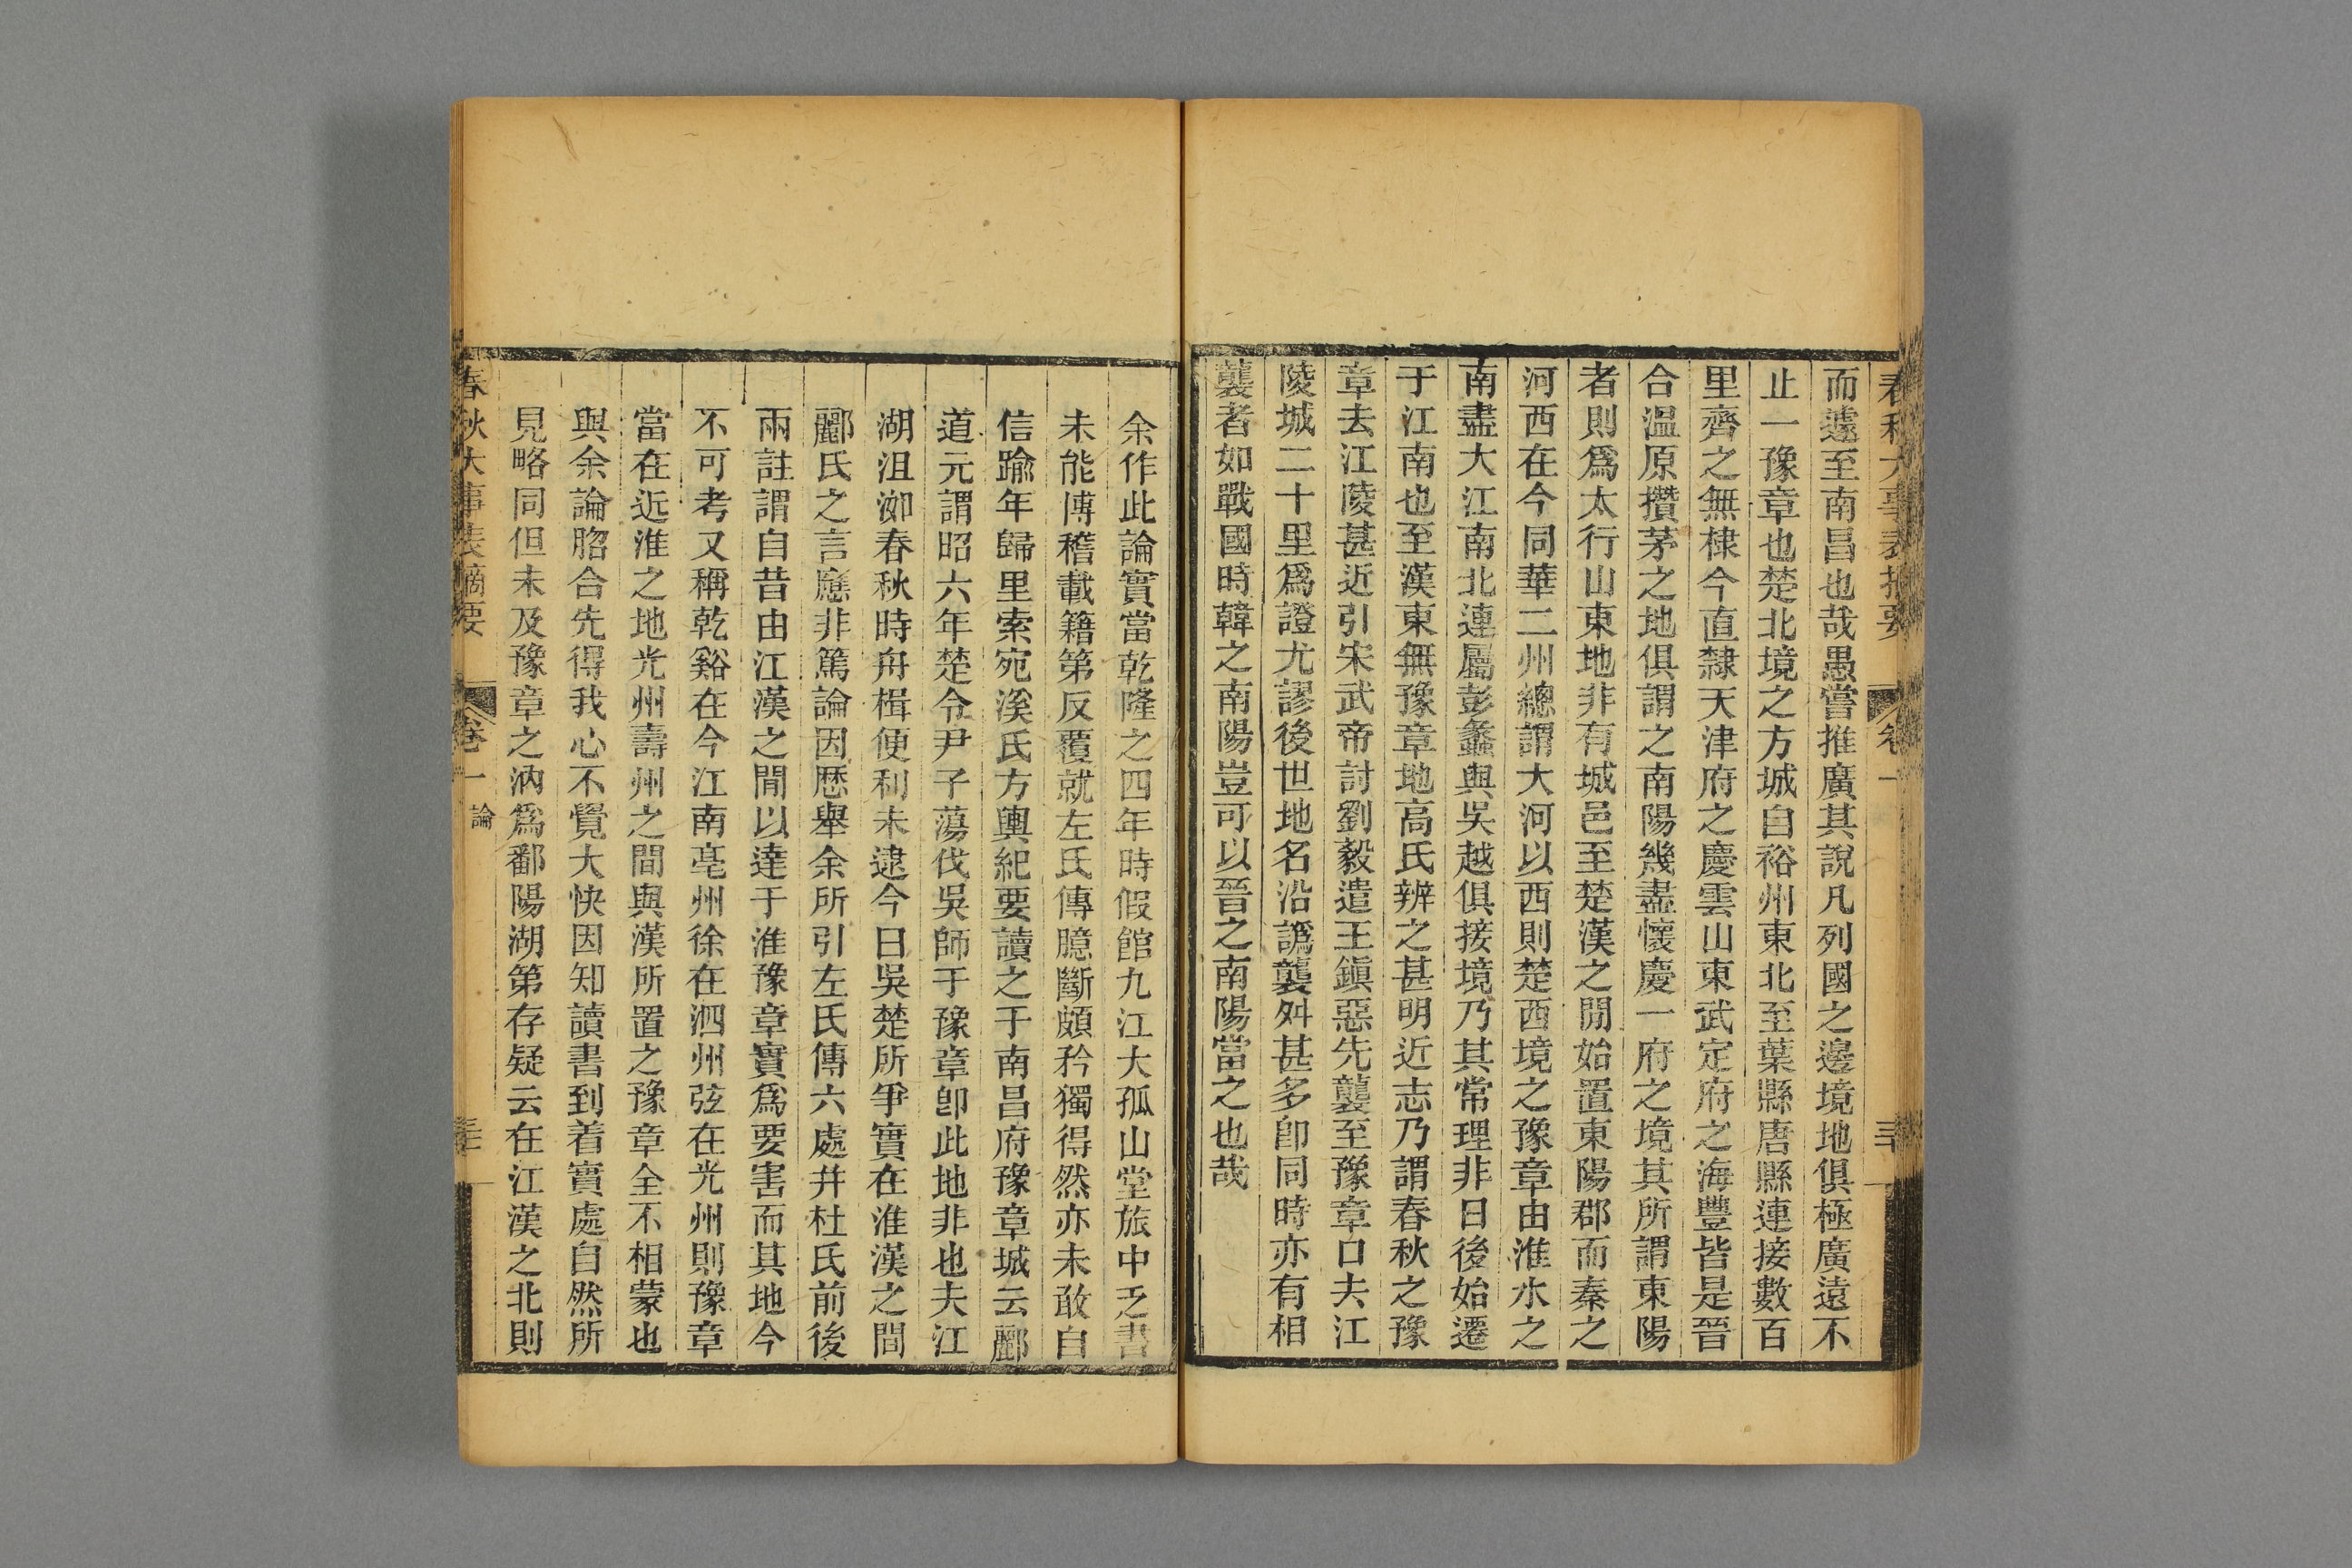 春秋大事表摘要 卷一
而遽至南昌也哉愚嘗推廣其說凡列國之邊境地俱極廣遠不
止一豫章也楚北境之方城自裕州東北至葉縣唐縣連接數百
里齊之無棣今直隸天津府之慶雲山東武定府之海豐皆是晉
合溫原攢茅之地俱謂之南陽幾盡懷慶一府之境其所謂東陽
者則爲太行山東地非有城邑至楚漢之間始置東陽郡而秦之
河西在今同華二州總謂大河以西則楚西境之豫章由淮水之
南盡大江南北連屬彭蠡與吳越俱接境乃其常理非日後始遷
于江南也至漢東無豫章地高氏辨之甚明近志乃謂春秋之豫
章去江陵甚近引宋武帝討劉毅遣王鎭惡先襲至豫章口夫江
陵城二十里爲證尤謬後世地名沿譌襲舛甚多卽同時亦有相
襲者如戰國時韓之南陽豈可以晉之南陽當之也哉
余作此論實當乾隆之四年時假館九江大孤山堂旅中乏書
未能博稽載籍第反覆就左氏傳臆斷頗矜獨得然亦未敢自
信踰年歸里索宛溪氏方輿紀要讀之于南昌府豫章城云酈
道元謂昭六年楚令尹子蕩伐吳師于豫章卽此地非也夫江
湖沮洳春秋時舟楫便利未逮今日吳楚所爭實在淮漢之間
酈氏之言應非篤論因歷舉余所引左氏傳六處幷杜氏前後
兩註謂自昔由江漢之間以達于淮豫章實爲要害而其地今
不可考又稱乾谿在今江南亳州徐在泗州弦在光州則豫章
當在近淮之地光州壽州之間與漢所置之豫章全不相蒙也
與余論脗合先得我心不覺大快因知讀書到着實處自然所
見略同但未及豫章之汭爲鄱陽湖第存疑云在江漢之北則
春秋大事表摘要 卷一 論